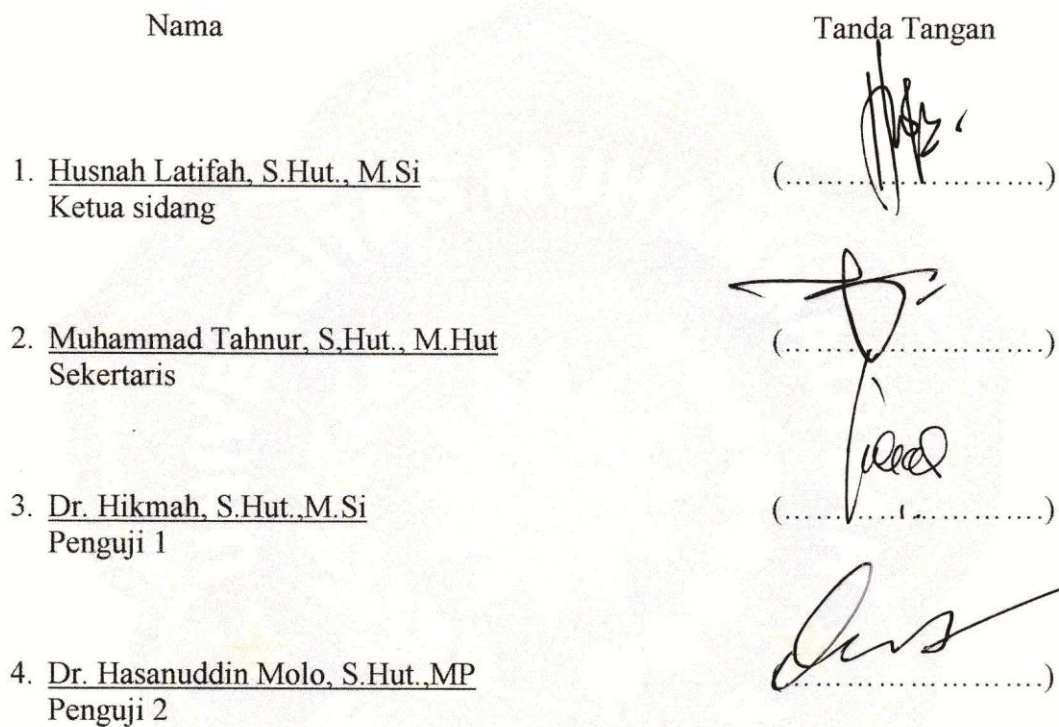 Nama Tanda Tangan
1. Husnah Latifah, S.Hut., M.Si (........................)
Ketua sidang
2. Muhammad Tahnur, S,Hut., M.Hut (........................)
Sekertaris
3. Dr. Hikmah, S.Hut.,M.Si (........................)
Penguji 1
4. Dr. Hasanuddin Molo, S.Hut.,MP (........................)
Penguji 2